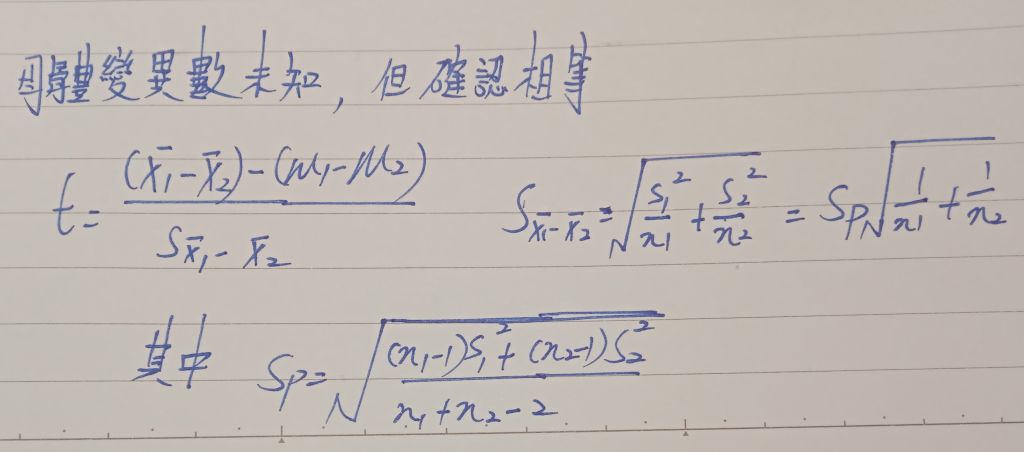 母體變異數未知, 但確認相等
t = ((x̄₁ - x̄₂) - (μ₁ - μ₂)) / S_{x̄₁ - x̄₂}　S_{x̄₁ - x̄₂} = √(S₁²/n₁ + S₂²/n₂) = Sp√(1/n₁ + 1/n₂)
其中 Sp = √(((n₁-1)S₁² + (n₂-1)S₂²) / (n₁ + n₂ - 2))